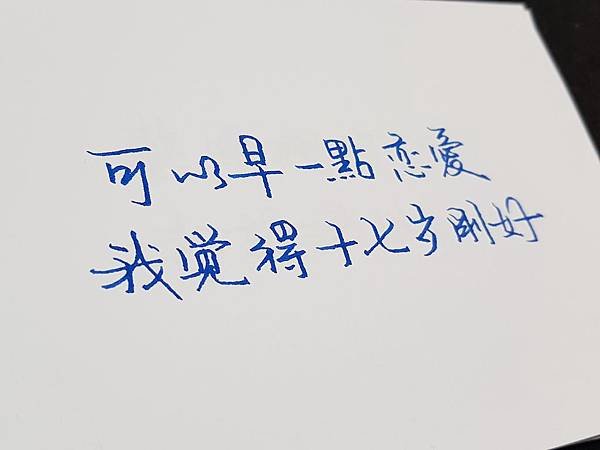 可以早一點恋愛
我觉得十七岁刚好